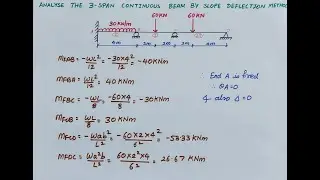 ANALYSE THE 3-SPAN CONTINUOUS BEAM BY SLOPE DEFLECTION METHOD
60KN 60KN
30KN/m
4m 2m 2m 2m 4m
MFAB = -WL²/12 = -30×4²/12 = -40 KNm
MFBA = WL²/12 = 40 KNm
MFBC = -WL/8 = -60×4/8 = -30KNm
MFCB = WL/8 = 30 KNm
MFCD = -Wab²/L² = -60×2×4²/6² = -53.33 KNm
MFDC = Wa²b/L² = 60×2²×4/6² = 26.67 KNm
∴ End A is fixed
∴ θA=0
& also Δ=0